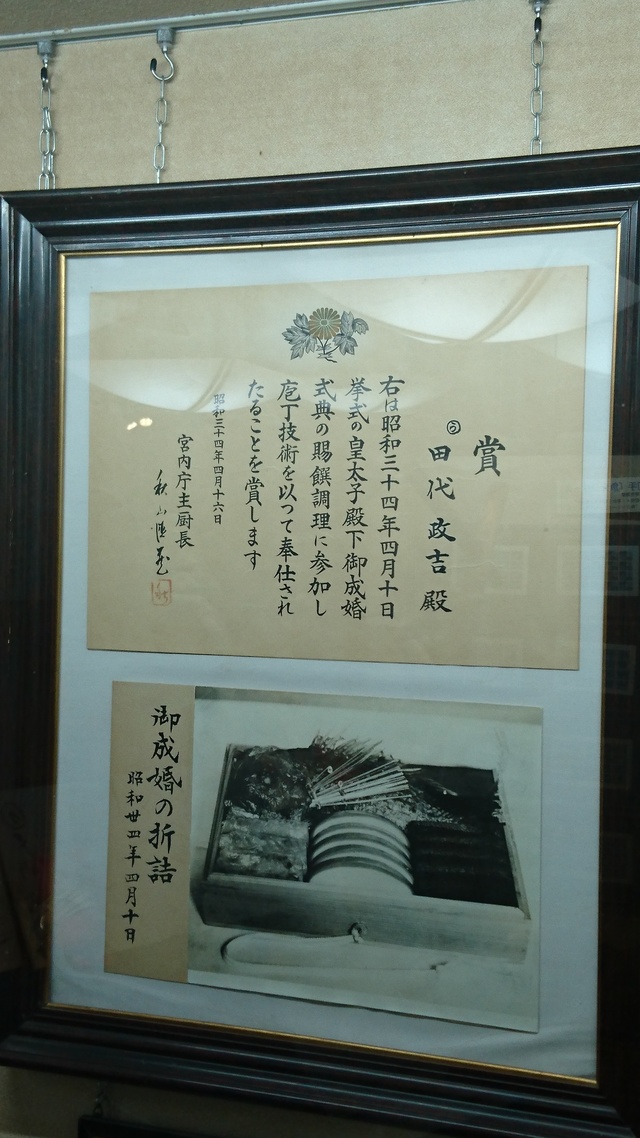 賞
う
田代政吉殿
右は昭和三十四年四月十日
挙式の皇太子殿下御成婚
式典の賜饌調理に参加し
庖丁技術を以つて奉仕され
たることを賞します
昭和三十四年四月十六日
宮内庁主厨長
秋山
御成婚の折詰
昭和卅四年四月十日